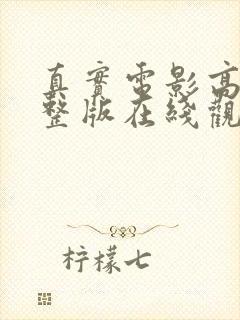 真實電影高
整版在綫觀
柠檬七